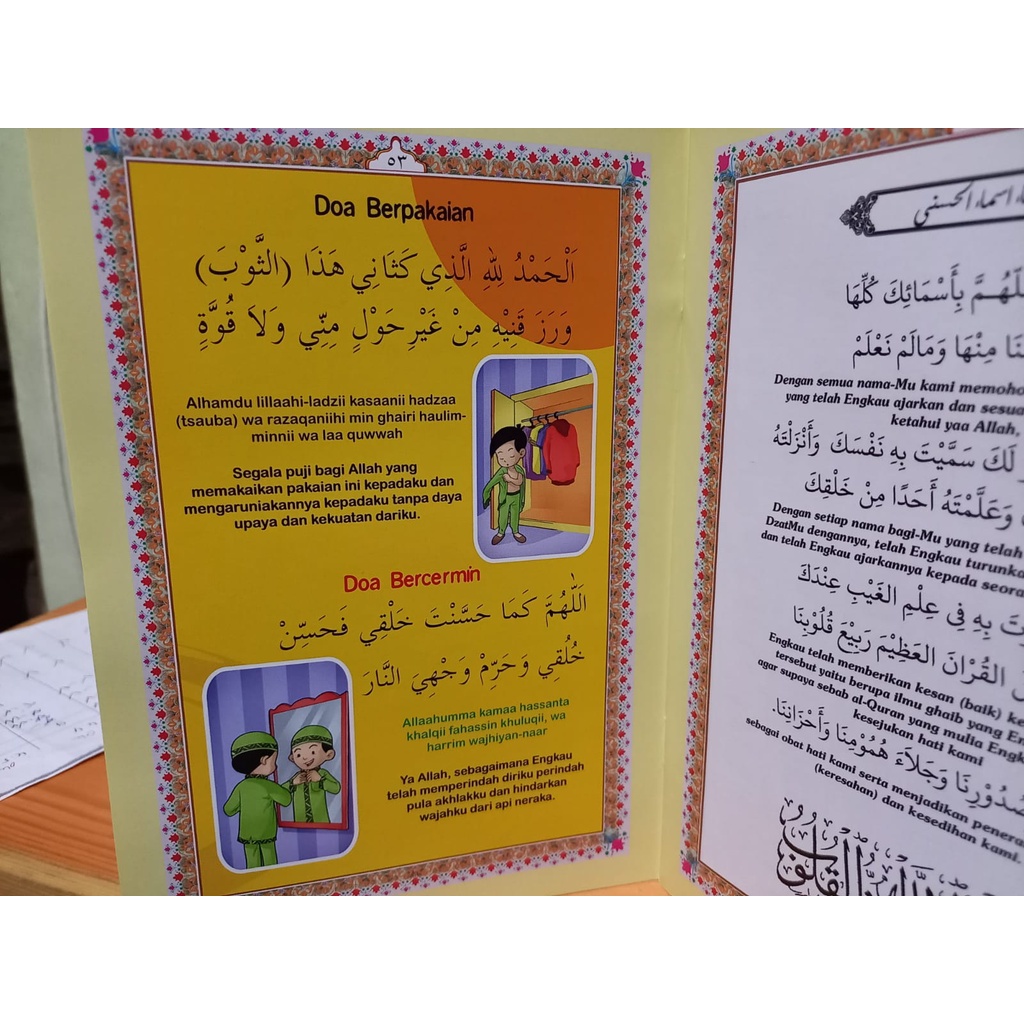 ٥٣
Doa Berpakaian
اَلْحَمْدُ لِلّٰهِ الَّذِي كَثَانِي هَذَا (الثَّوْبَ)
وَرَزَ قَنِيْهِ مِنْ غَيْرِ حَوْلٍ مِنِّي وَلاَ قُوَّةٍ
Alhamdu lillaahi-ladzii kasaanii hadzaa
(tsauba) wa razaqaniihi min ghairi haulim-
minnii wa laa quwwah
Segala puji bagi Allah yang
memakaikan pakaian ini kepadaku dan
mengaruniakannya kepadaku tanpa daya
upaya dan kekuatan dariku.
Doa Bercermin
اَللّٰهُمَّ كَمَا حَسَّنْتَ خَلْقِي فَحَسِّنْ
خُلُقِي وَحَرِّمْ وَجْهِيَ النَّارَ
Allaahumma kamaa hassanta
khalqii fahassin khuluqii, wa
harrim wajhiyan-naar
Ya Allah, sebagaimana Engkau
telah memperindah diriku perindah
pula akhlakku dan hindarkan
wajahku dari api neraka.
اسماء الحسنى
بِأَسْمَائِكَ كُلِّهَا
مِنْهَا وَمَالَمْ نَعْلَمْ
Dengan semua nama-Mu kami memoho
yang telah Engkau ajarkan dan sesua
ketahui yaa Allah,
لَكَ سَمَّيْتَ بِهِ نَفْسَكَ وَأَنْزَلْتَهُ
وَعَلَّمْتَهُ أَحَدًا مِنْ خَلْقِكَ
Dengan setiap nama bagi-Mu yang telah
DzatMu dengannya, telah Engkau turunka
dan telah Engkau ajarkannya kepada seora
بِهِ فِي عِلْمِ الْغَيْبِ عِنْدَكَ
الْقُرْانَ الْعَظِيْمَ رَبِيْعَ قُلُوْبِنَا
Engkau telah memberikan kesan (baik) ke
tersebut yaitu berupa ilmu ghaib yang En
agar supaya sebab al-Quran yang mulia Engk
kesejukan hati kami
هُمُوْمِنَا وَأَحْزَانِنَا.
وَجَلَاءَ
sebagai obat hati kami serta menjadikan penera
(keresahan) dan kesedihan kami.